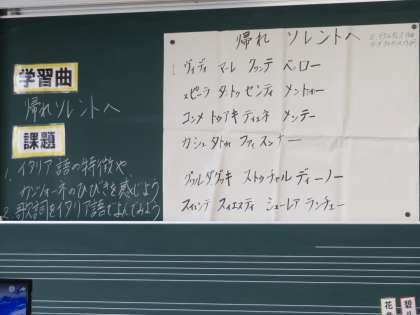 学習曲
帰れソレントへ
課題
1. イタリア語の特徴や
カンツォーネのひびきを感じよう
2. 歌詞をイタリア語でよんでみよう
帰れ ソレントへ
1 ヴィディ マーレ クヮンテ ベーロー
スピーラ タートゥ センティ メントォー
コンメ トゥアキ ティエネ メンテー
カシェ タトゥ ファイ スンナー
グワルダグワキ ストゥチャルディーノー
スィエンテ スィエスティ シューレア ランチェー